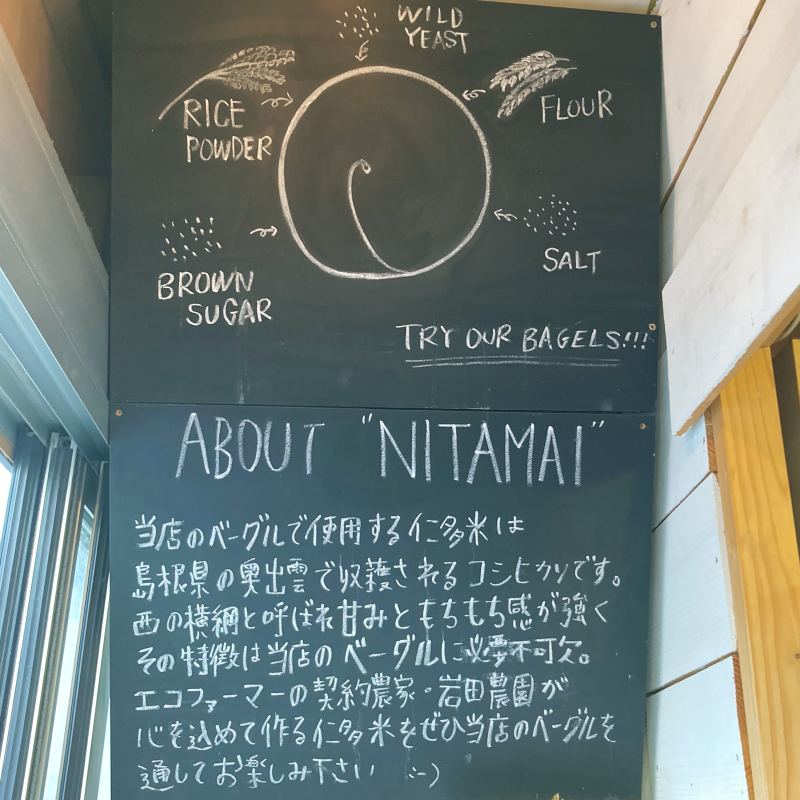 WILD
YEAST
RICE
POWDER
FLOUR
BROWN
SUGAR
SALT
TRY OUR BAGELS!!!
ABOUT "NITAMAI"
当店のベーグルで使用する仁多米は
島根県の奥出雲で収穫されるコシヒカリです。
西の横綱と呼ばれ甘みともちもち感が強く
その特徴は当店のベーグルに必要不可欠。
エコファーマーの契約農家・岩田農園が
心を込めて作る仁多米をぜひ当店のベーグルを
通してお楽しみ下さい :-)